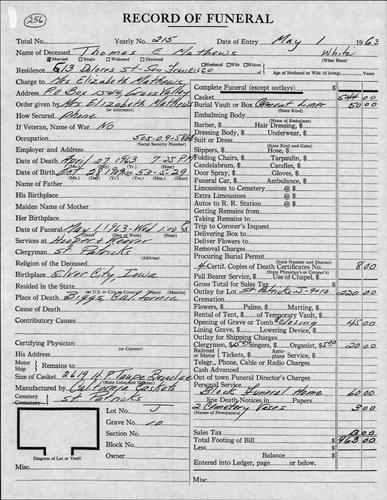 256
RECORD OF FUNERAL
Total No. Yearly No. 215 Date of Entry May 1 1963
Name of Deceased Thomas E Mathews White
(What Race)
Married Single Widowed Divorced Husband Wife Widow
Residence 613 Dolores St. San Francisco
Age of Husband or Wife (if living) Years
Charge to Mrs Elizabeth Mathews
Address P.O Box 1544 Grass Valley
Order given by Mrs Elizabeth Mathews
(or informant)
How Secured Phone
If Veteran, Name of War No
Occupation 505-09-
(Social Security Number)
Employer and Address
Date of Death April 27 1963 7:25 PM
(Mo.) (Day) (Yr.) (Hour)
Date of Birth Oct 28 1909 Age 53-5-29
Name of Father
His Birthplace
Maiden Name of Mother
Her Birthplace
Date of Funeral May 1 1963-Wed
(Mo.) (Day) (Yr.) (Day of Week) (Hour)
Services at Hooper & Weaver
Clergyman St. Patricks
Religion of the Deceased
Birthplace Silver City, Iowa
Resided in the State
(or U.S. or City) (Years) (Months)
Place of Death Biggs California
Cause of Death
Contributory Causes
Certifying Physician
(or Coroner)
His Address
Motor
Ship
Remains to
Size of Casket 2619
(State Complete Number)
Manufactured by California Caskets
Cemetery
Crematory
St. Patricks
Lot No. J
Grave No. 10
Section No.
Block No.
Owner
Diagram of Lot or Vault
Misc.
Complete Funeral (except outlays) $
Casket 544 00
(State Kind)
Burial Vault or Box Cement Liner 50 00
Embalming Body
(Name of Embalmer)
Barber, $ Hair Dressing, $
Dressing Body, $ Underwear, $
Suit or Dress
(State Kind and Color)
Slippers, $ Hose, $
Folding Chairs, $ Tarpaulin, $
Candelabrum, $ Candles, $
Door Spray, $ Gloves, $
Funeral Car, $ Ambulance, $
Limousines to Cemetery @ $
Extra Limousines @ $
Autos to R. R. Station @ $
Getting Remains from
Taking Remains to
Trip to Coroner's Inquest
Delivering Box to
Deliver Flowers to
Removal Charges
Procuring Burial Permit
(State Number and District)
4 Certif. Copies of Death Certificates No. 8 00
(State Physician's or Coroner's)
Pall Bearer Service, $ Use of Chapel, $
Gross Total for Sales Tax $
Outlay for Lot St Patricks J-9&10 220 00
Cremation
Flowers, $ Palms, $ Matting, $
Rental of Tent, $ of Temporary Vault, $
Opening of Grave or Tomb Closing 45 00
Lining Grave, $ Lowering Device, $
Outlay for Shipping Charges
Clergymen, $ Singers, $ Organist, $5.00 20 00
Railroad
or Motor
Tickets, $ Auto-
plane Service, $
Telegr., Phone, Cable or Radio Charges
Cash Advanced
Out of town Funeral Director's Charges
Personal Service
Block Funeral Home 60 00
line Death Notices in Papers
(Names of Newspapers)
2 Cemetery Vases 3 00
Sales Tax
Total Footing of Bill $ 963 00
Less
Balance $
Entered into Ledger, page or below.
Misc.